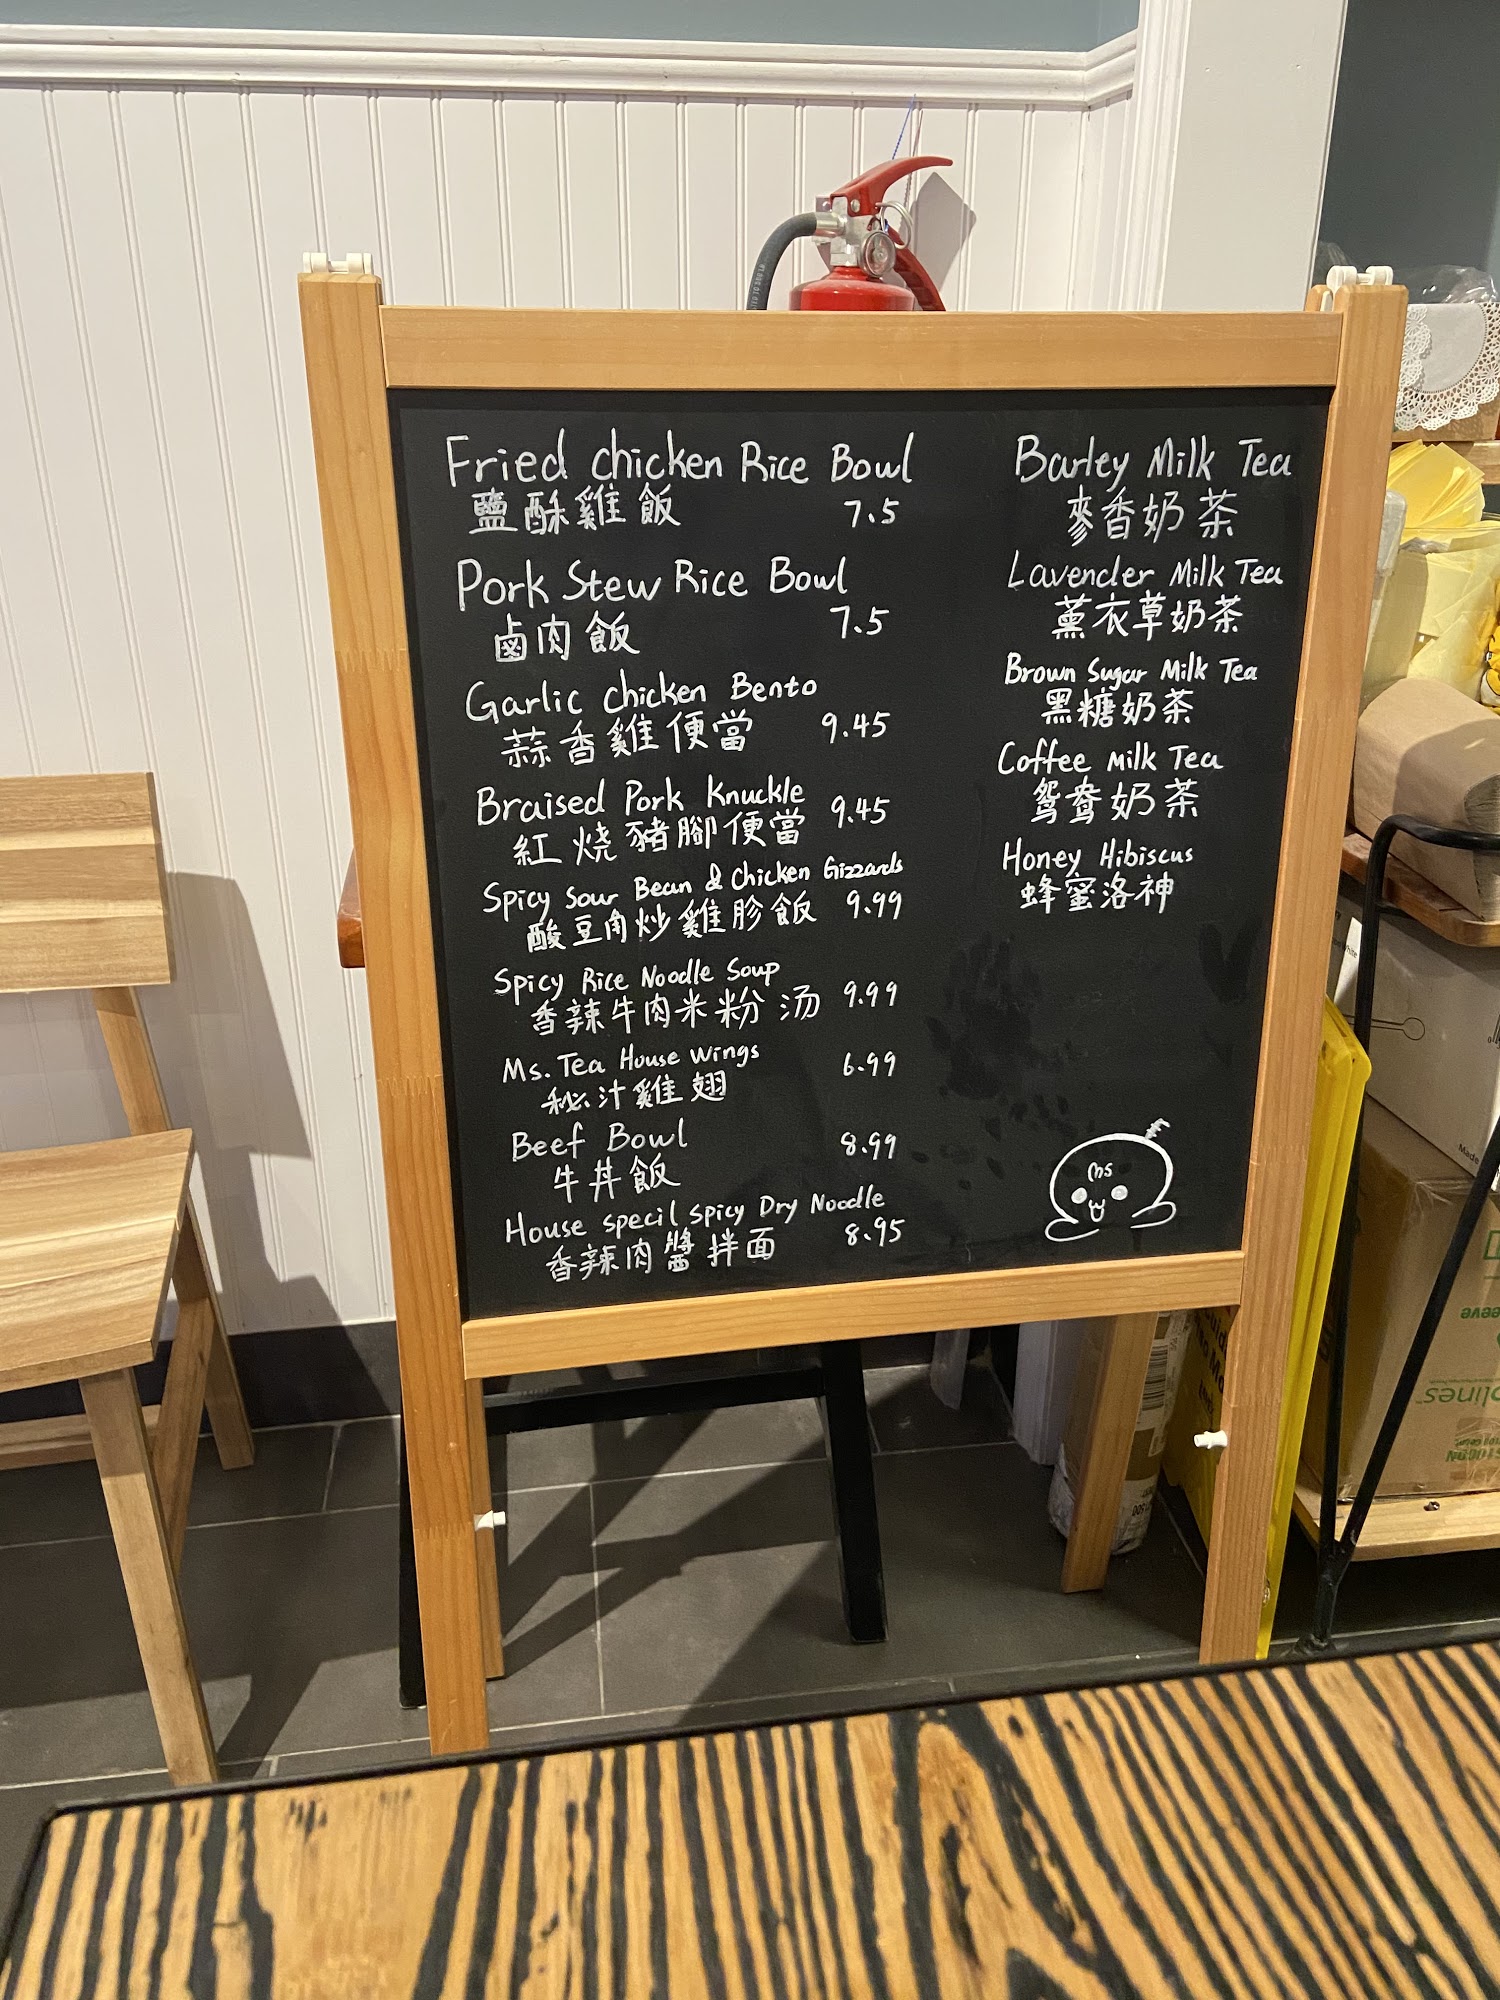 Fried chicken Rice Bowl
鹽酥雞飯 7.5
Pork Stew Rice Bowl
鹵肉飯 7.5
Garlic chicken Bento
蒜香雞便當 9.45
Braised Pork Knuckle
紅燒豬腳便當 9.45
Spicy Sour Bean & Chicken Gizzards
酸豆角炒雞胗飯 9.99
Spicy Rice Noodle Soup
香辣牛肉米粉汤 9.99
Ms. Tea House Wings 6.99
秘汁雞翅
Beef Bowl 8.99
牛丼飯
House specil spicy Dry Noodle
香辣肉醬拌面 8.95
Barley Milk Tea
麥香奶茶
Lavender Milk Tea
薰衣草奶茶
Brown Sugar Milk Tea
黑糖奶茶
Coffee Milk Tea
鴛鴦奶茶
Honey Hibiscus
蜂蜜洛神
ms
Made